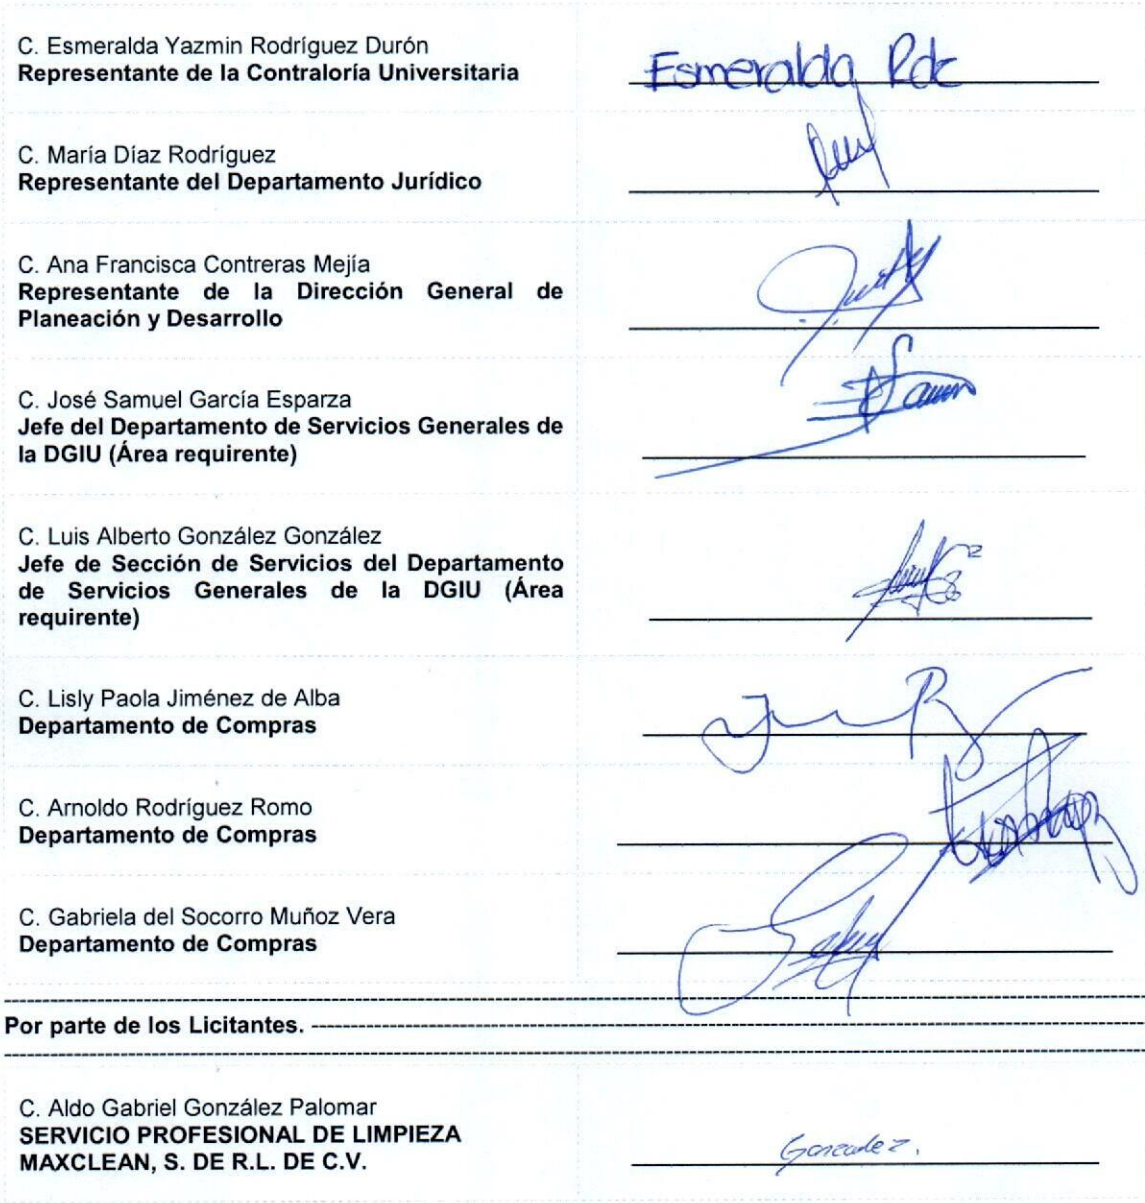 C. Esmeralda Yazmin Rodríguez Durón
Representante de la Contraloría Universitaria
Esmeralda Rdz
C. María Díaz Rodríguez
Representante del Departamento Jurídico
C. Ana Francisca Contreras Mejía
Representante de la Dirección General de
Planeación y Desarrollo
C. José Samuel García Esparza
Jefe del Departamento de Servicios Generales de
la DGIU (Área requirente)
C. Luis Alberto González González
Jefe de Sección de Servicios del Departamento
de Servicios Generales de la DGIU (Área
requirente)
C. Lisly Paola Jiménez de Alba
Departamento de Compras
C. Arnoldo Rodríguez Romo
Departamento de Compras
C. Gabriela del Socorro Muñoz Vera
Departamento de Compras
Por parte de los Licitantes.
C. Aldo Gabriel González Palomar
SERVICIO PROFESIONAL DE LIMPIEZA
MAXCLEAN, S. DE R.L. DE C.V.
Gonzalez.